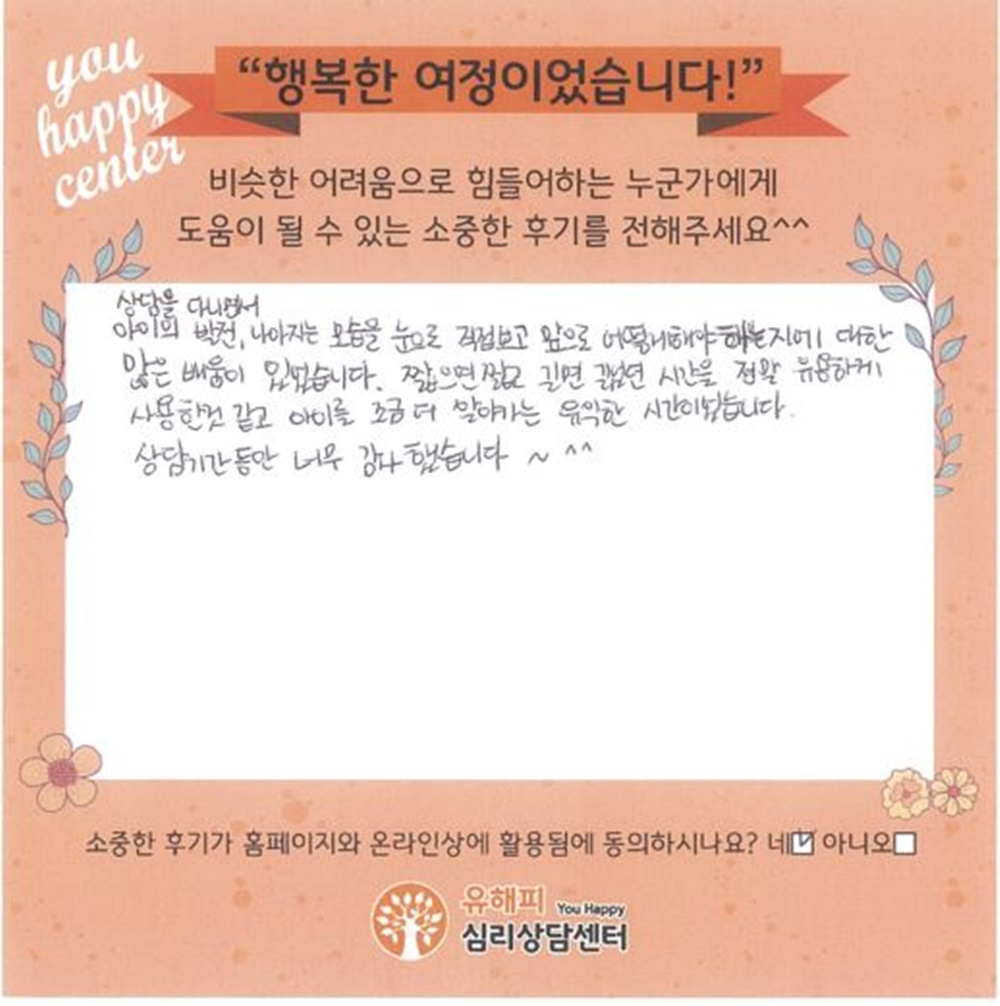 you
happy
center
“행복한 여정이었습니다!”
비슷한 어려움으로 힘들어하는 누군가에게
도움이 될 수 있는 소중한 후기를 전해주세요^^
상담을 다니면서
아이의 발전, 나아지는 모습을 눈으로 직접보고 앞으로 어떻게해야 하는지에 대한
많은 배움이 있었습니다. 짧으면짧고 길면 길었던 시간을 정말 유용하게
사용한것 같고 아이를 조금 더 알아가는 유익한 시간이였습니다.
상담기간동안 너무 감사했습니다 ~ ^^
소중한 후기가 홈페이지와 온라인상에 활용됨에 동의하시나요? 네 아니오
유해피 You Happy
심리상담센터